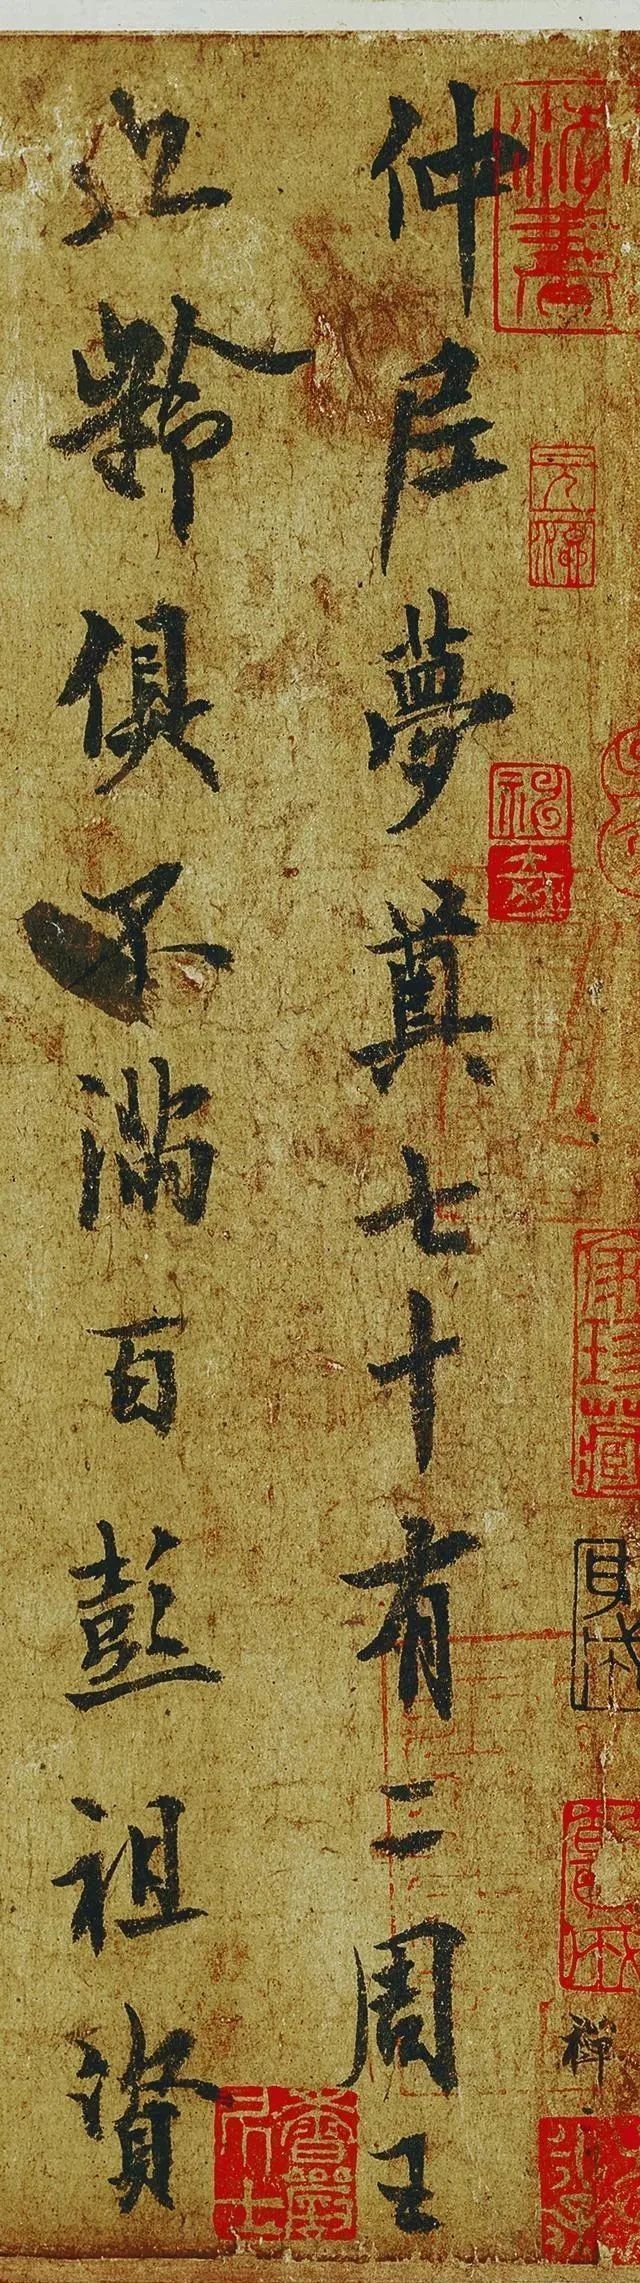 法書
禪
仲尼夢奠七十有二周王
九齡俱不滿百彭祖資